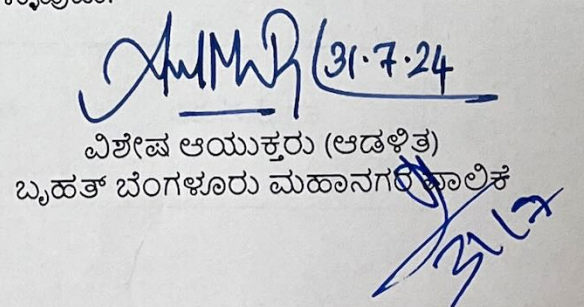 31.7.24
ವಿಶೇಷ ಆಯುಕ್ತರು (ಆಡಳಿತ)
ಬೃಹತ್ ಬೆಂಗಳೂರು ಮಹಾನಗರ ಪಾಲಿಕೆ
31/7